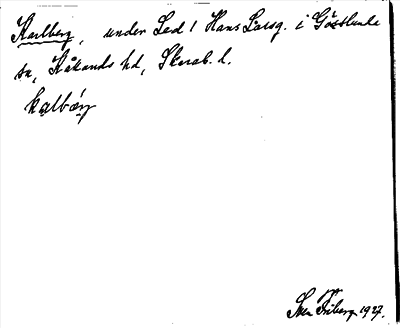 Karlberg, under Led 1 Hans Larsg. i Götlunda
sn, Kåkinds hd, Skarab. l.
kalbärj
Sven Friberg 1927.